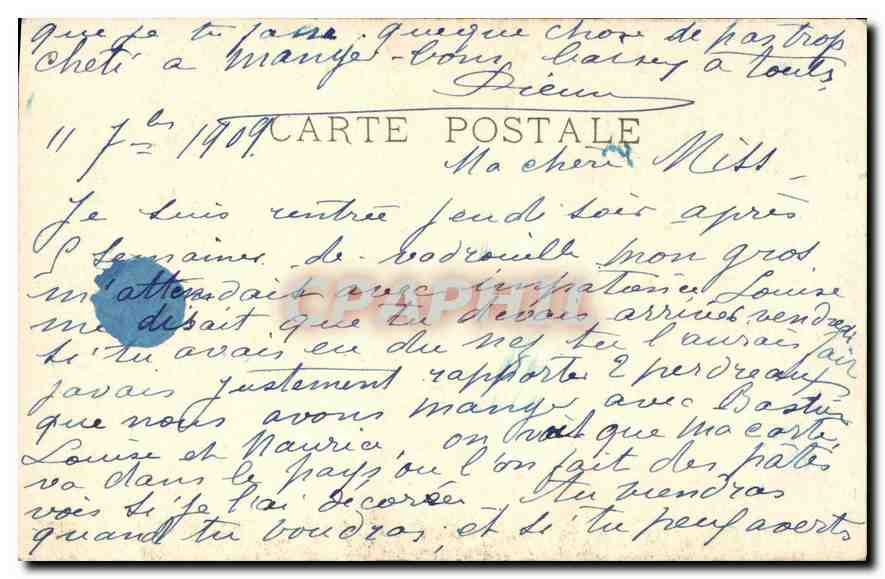 que je tu fasse quegue chose de pas trop
cheti a manger - bons baisey a touts
11 7bs 1909. CARTE POSTALE
Ma chère Miss
Je suis rentrée jeudi soir après
5 semaines de vadrouille mon gros
m'attendait avec impatience Louise
me disait que tu devais arriver vendredi
si tu avais eu du nez tu l'aurais fait
javais justement rapporter 2 perdreaux
que nous avons manger avec
Louise et Maurice, on voit que ma carte
va dans le pays ou l'on fait des pâtés
vois si je l'ai decorée tu viendras
quand tu voudras, et si tu peux averts